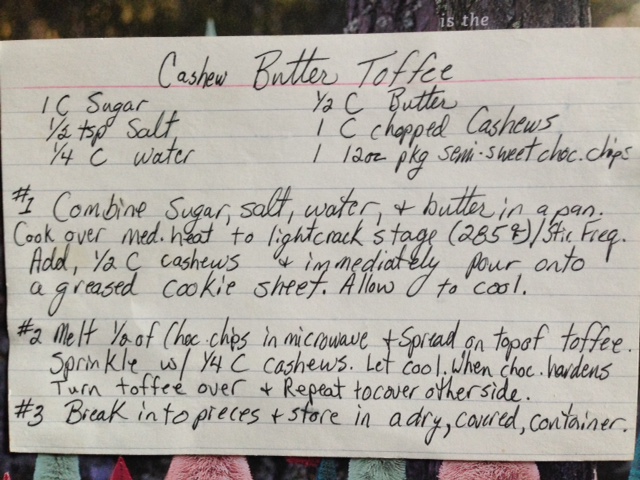 is the
Cashew Butter Toffee
1 C Sugar
1/2 C Butter
1/2 tsp Salt
1 C chopped Cashews
1/4 C water
1 12oz pkg semi-sweet choc. chips
#1 Combine Sugar, salt, water, + butter in a pan.
Cook over med. heat to light crack stage (285°F)/Stir Freq.
Add, 1/2 C cashews + immediately pour onto
a greased cookie sheet. Allow to cool.
#2 Melt 1/2 of Choc. chips in microwave + Spread on top of toffee.
Sprinkle w/ 1/4 C cashews. Let cool. When choc. hardens
Turn toffee over + Repeat to cover other side.
#3 Break into pieces + store in a dry, covered, container.